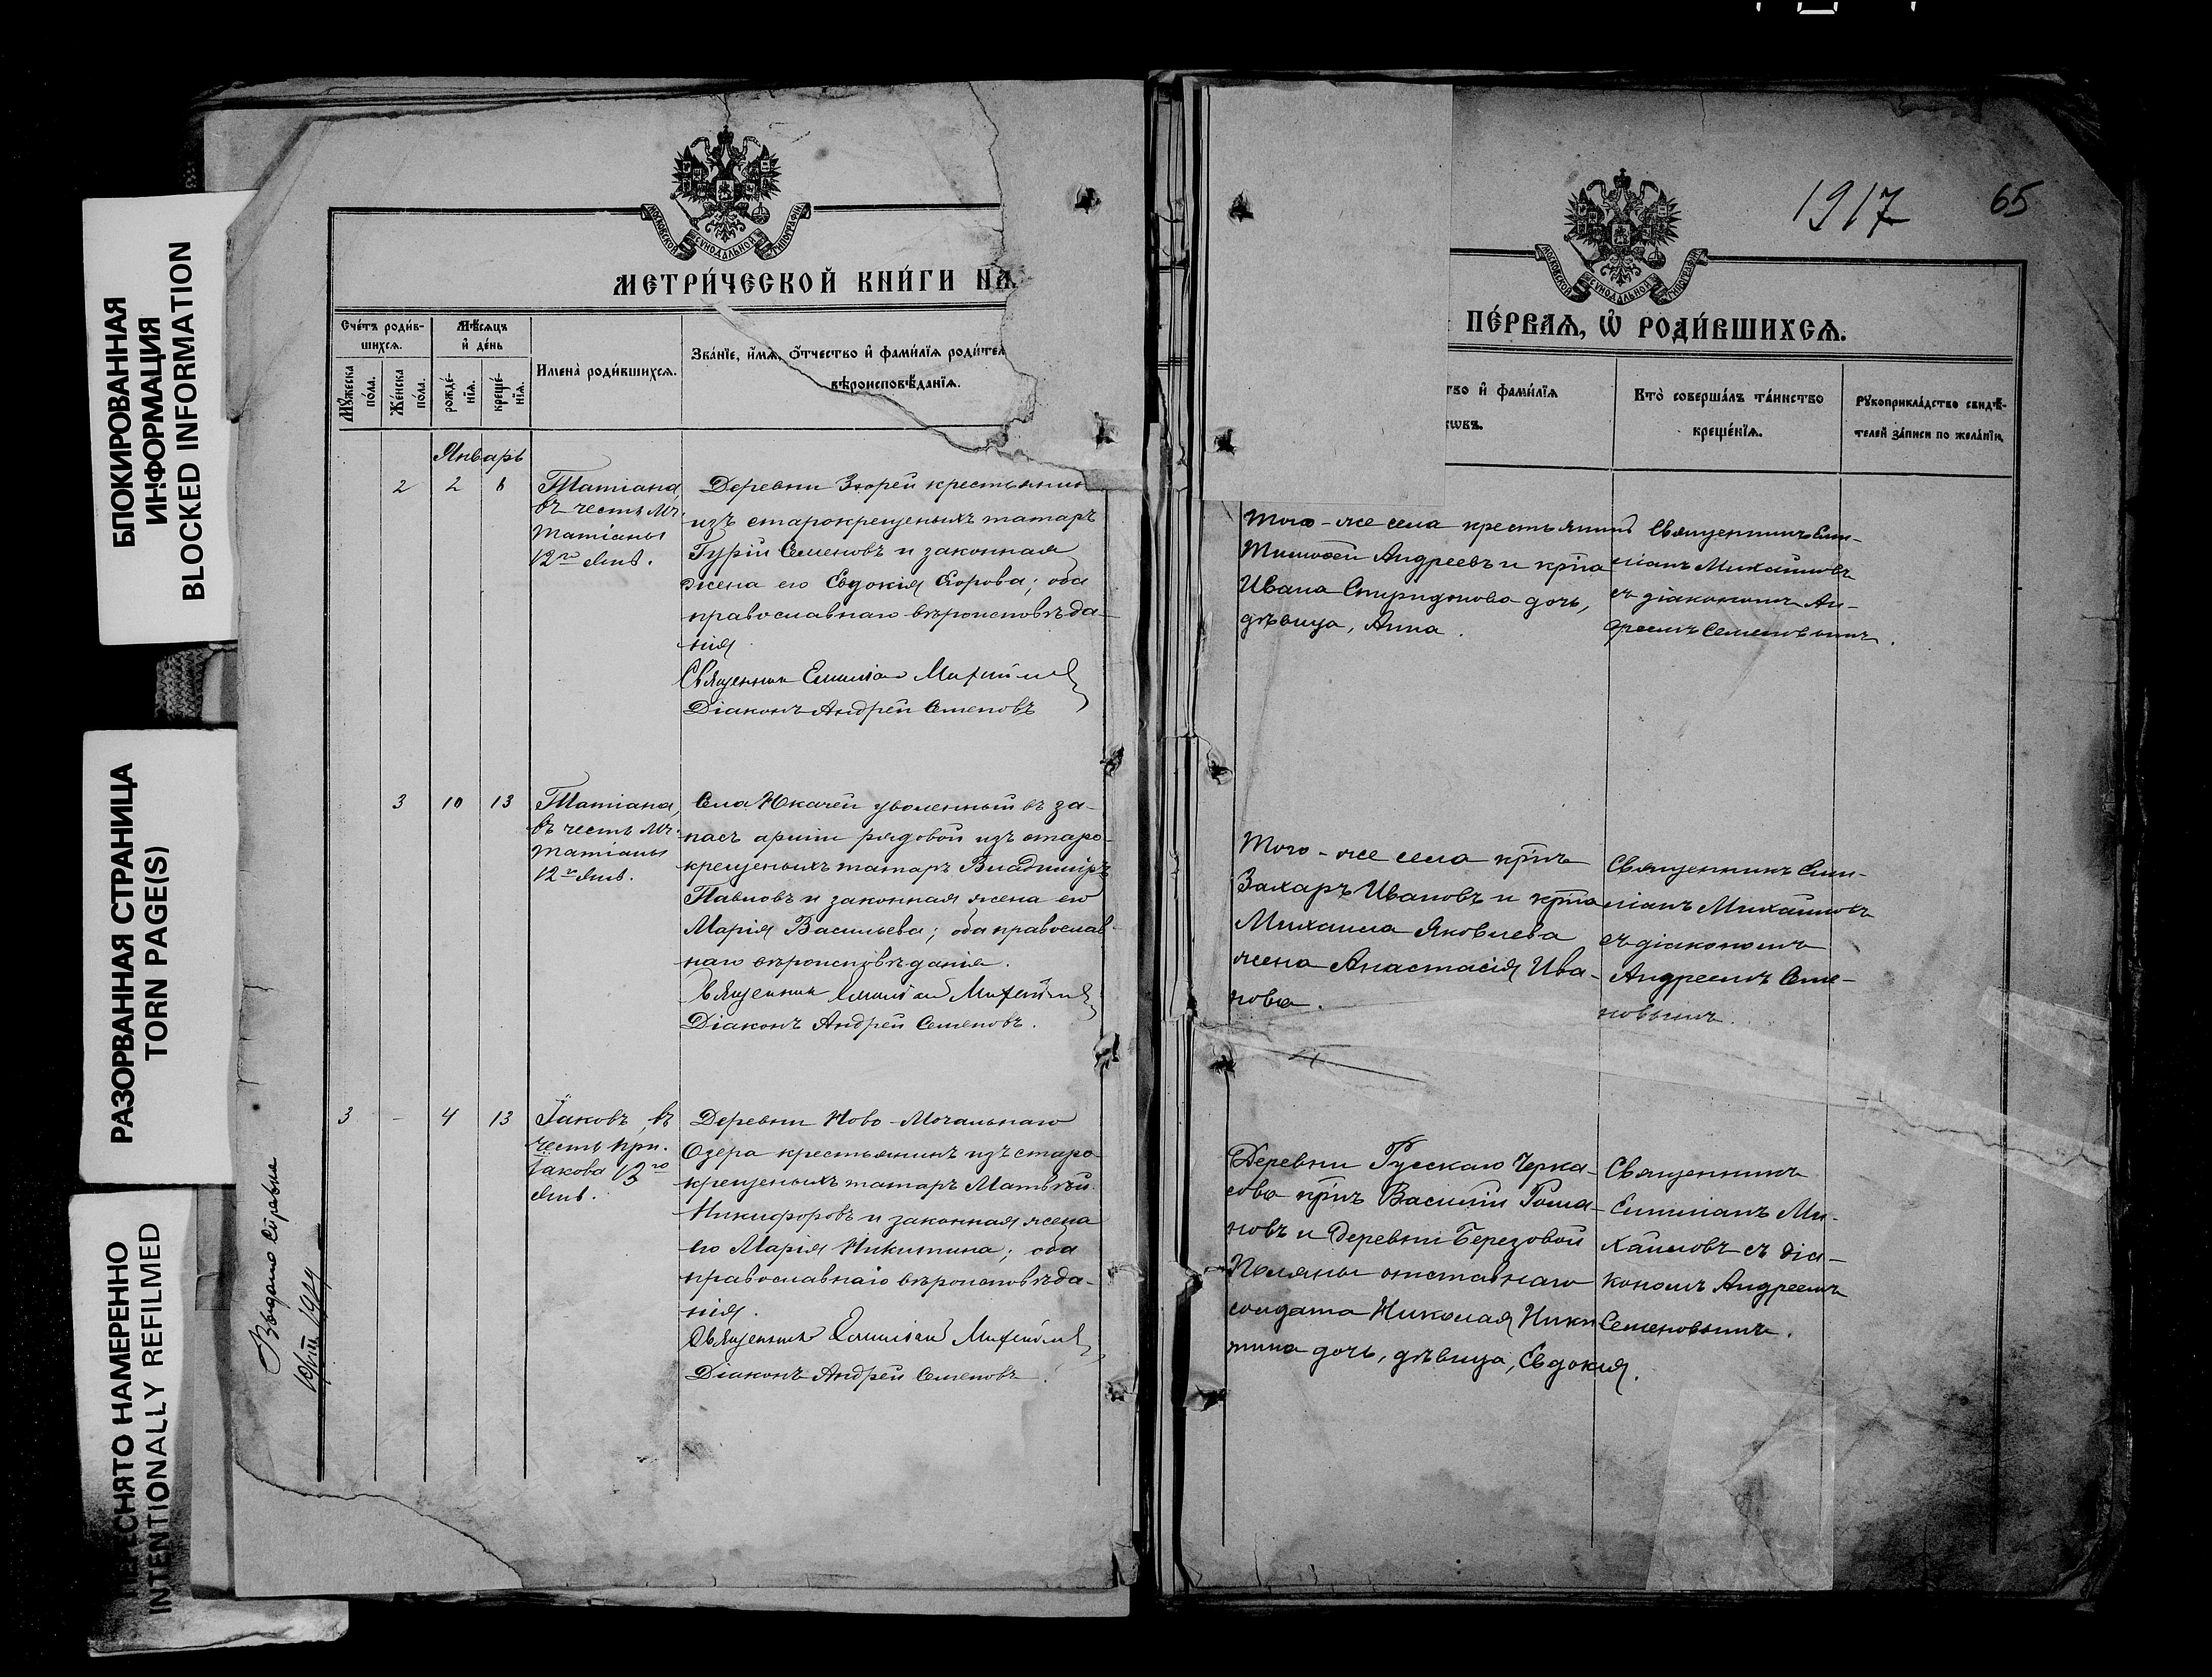 БЛОКИРОВАННАЯ
ИНФОРМАЦИЯ
BLOCKED INFORMATION
РАЗОРВАННАЯ СТРАНИЦА
TORN PAGE(S)
СНЯТО НАМЕРЕННО
INTENTIONALLY REFILMED
МОСКОВСКОЙ СѴНОДАЛЬНОЙ ТИПОГРАФІИ
МЕТРИ́ЧЕСКОЙ КНИ́ГИ НА
Сче́тъ роди́в-
шихся.
Мѣ́сяцъ
и҆ де́нь
Имена̀ роди́вшихся.
Зва́нїе, и҆́мя, ѻ҆́тчество и҆ фами́лїя роди́тел
вѣроисповѣ́данїя.
Мꙋ́жеска
по́ла.
Же́нска
по́ла.
рожде́-
нїя.
креще́-
нїя.
Январь
2 2 6
Татіана,
въ честь мч.
Татіаны
12го Янв.
Деревни Зюрей крестьянинъ
изъ старокрещеныхъ татаръ
Гурій Семеновъ и законная
жена его Евдокія Егорова; оба
православнаго вѣроисповѣда-
нія
Священник Емиліан Михайлов
Діаконъ Андрей Семеновъ
3 10 13
Татіана,
въ честь мч.
Татіаны
12го Янв.
Села Юкачей уволенный въ за-
пасъ арміи рядовой изъ старо-
крещеныхъ татаръ Владиміръ
Павловъ и законная жена его
Марія Васильева; оба православ-
наго вѣроисповѣданія.
Священник Емиліан Михайлов
Діаконъ Андрей Семеновъ.
3 - 4 13
Іаковъ, въ
честь прп.
Іакова 13го
Янв.
Деревни Ново-Мочальнаго
Озера крестьянинъ изъ старо-
крещеныхъ татаръ Матвѣй
Никифоровъ и законная жена
его Марія Никитина; оба
православнаго вѣроисповѣда-
нія.
Священник Емиліан Михайлов
Діаконъ Андрей Семеновъ.
справка
1917 65
МОСКОВСКОЙ СѴНОДАЛЬНОЙ ТИПОГРАФІИ
ПЕ́РВАЯ, Ѡ҆ РОДИ́ВШИХСЯ.
тво и҆ фами́лїя
ковъ.
Кто̀ соверша́лъ та́инство
креще́нїя.
Рꙋкоприкла́дство свидѣ́-
телей за́писи по жела́нїю.
Того-же села крестьянинъ
Тимоѳей Андреевъ и кр-на
Ивана Спиридонова дочь,
дѣвица, Анна.
Священникъ Еми-
ліанъ Михайловъ
съ діакономъ Ан-
дреемъ Семеновымъ.
Того-же села кр-нъ
Захаръ Ивановъ и кр-на
Михаила Яковлева
жена Анастасія Ива-
нова.
Священникъ Еми-
ліанъ Михайловъ
съ діакономъ
Андреемъ Семе-
новымъ.
Деревни Русскаго Черка-
сова кр-нъ Василій Рома-
новъ и деревни Березовой
Поляны отставнаго
солдата Николая Ники
тина дочь, дѣвица, Евдокія.
Священникъ
Емиліанъ Ми-
хайловъ съ діа-
кономъ Андреемъ
Семеновымъ.